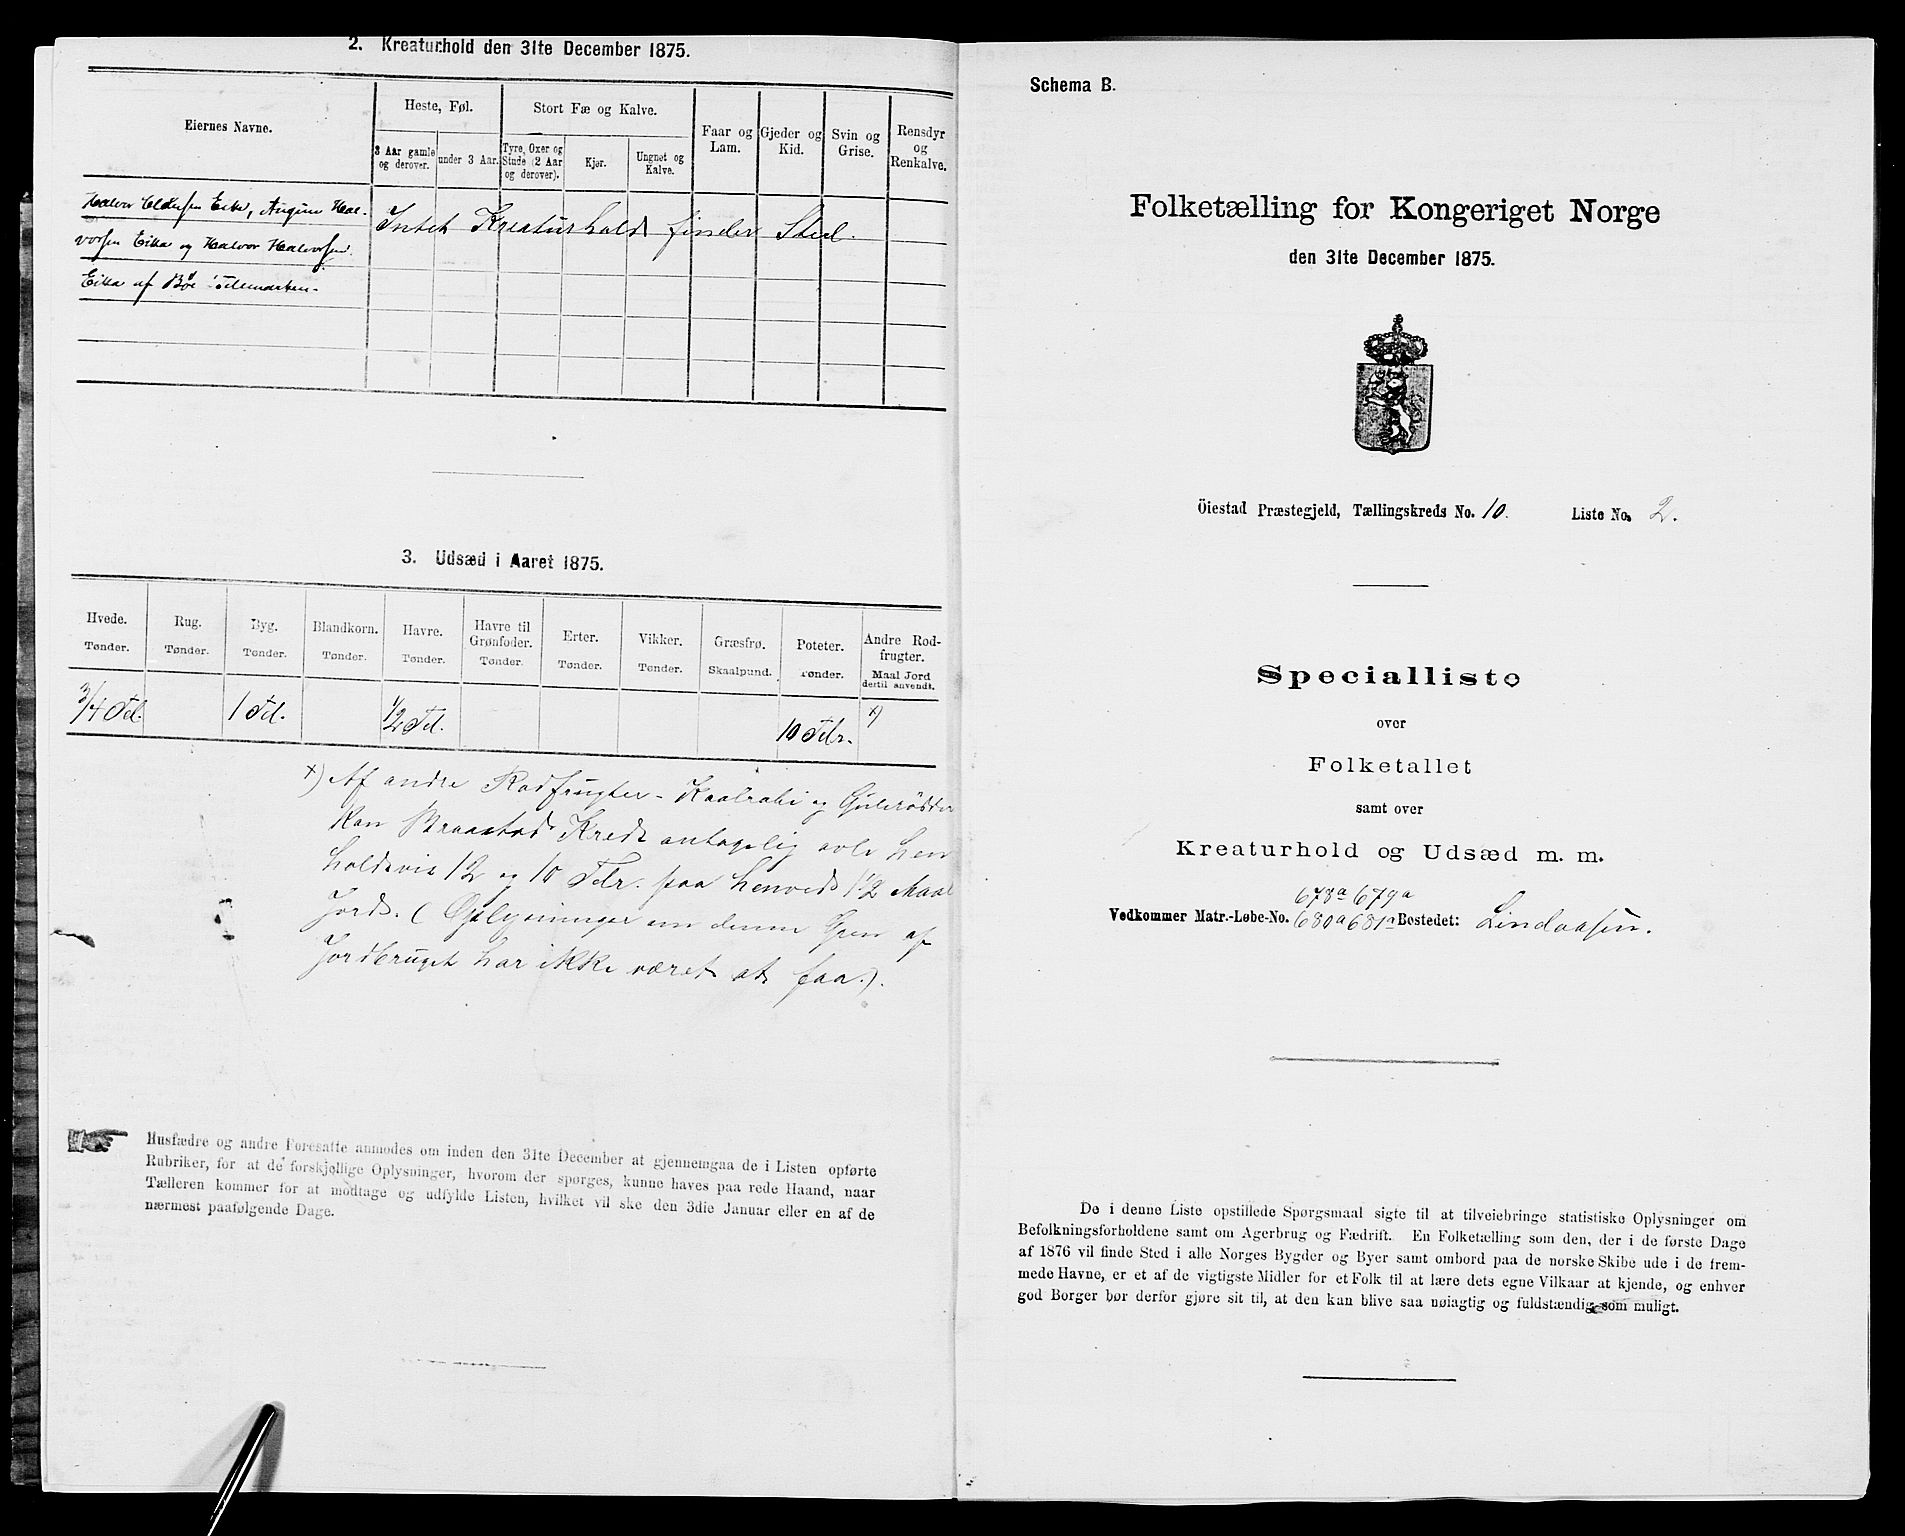 2. Kreaturhold den 31te December 1875.
Eiernes Navne.
Heste, Føl.
Stort Fæ og Kalve.
Faar og Lam.
Gjeder og Kid.
Svin og Grise.
Rensdyr og Renkalve.
3 Aar gamle og derover.
under 3 Aar.
Tyre, Oxer og Stude (2 Aar og derover).
Kjør.
Ungnøt og Kalve.
Halvor Eike, Hal-
vorsen Eika og Halvor Halvorsen
Eika af Bøe Telemarken.
Intet Kreaturhold finder Sted.
3. Udsæd i Aaret 1875.
Hvede. Tønder.
Rug. Tønder.
Byg. Tønder.
Blandkorn. Tønder.
Havre. Tønder.
Havre til Grønfoder. Tønder.
Erter. Tønder.
Vikker. Tønder.
Græsfrø. Skaalpund.
Poteter. Tønder.
Andre Rodfrugter. Maal Jord dertil anvendt.
3/4 Td. 1 Td. 1/2 Td. 10 Tdr. x)
x) Af andre Rodfrugter - Kaalrabi og Gulerødder
kan Braastad Kreds antagelig avle hen
holdsvis 12 og 10 Tdr. paa henved 12 Maal
Jord. (Oplysninger om denne Gren af
Jordbruget har ikke været at faa.).
Husfædre og andre Foresatte anmodes om inden den 31te December at gjennemgaa de i Listen opførte
Rubriker, for at de forskjellige Oplysninger, hvorom der spørges, kunne haves paa rede Haand, naar
Tælleren kommer for at modtage og udfylde Listen, hvilket vil ske den 3die Januar eller en af de
nærmest paafølgende Dage.
Schema B.
Folketælling for Kongeriget Norge
den 31te December 1875.
Öiestad Præstegjeld, Tællingskreds No. 10. Liste No. 2.
Specialliste
over
Folketallet
samt over
Kreaturhold og Udsæd m. m.
678a 679a
Vedkommer Matr.-Løbe-No. 680a 681a Bostedet: Lindaasen.
De i denne Liste opstillede Spørgsmaal sigte til at tilveiebringe statistiske Oplysninger om
Befolkningsforholdene samt om Agerbrug og Fædrift. En Folketælling som den, der i de første Dage
af 1876 vil finde Sted i alle Norges Bygder og Byer samt ombord paa de norske Skibe ude i de frem-
mede Havne, er et af de vigtigste Midler for et Folk til at lære dets egne Vilkaar at kjende, og enhver
god Borger bør derfor gjøre sit til, at den kan blive saa nøiagtig og fuldstændig som muligt.